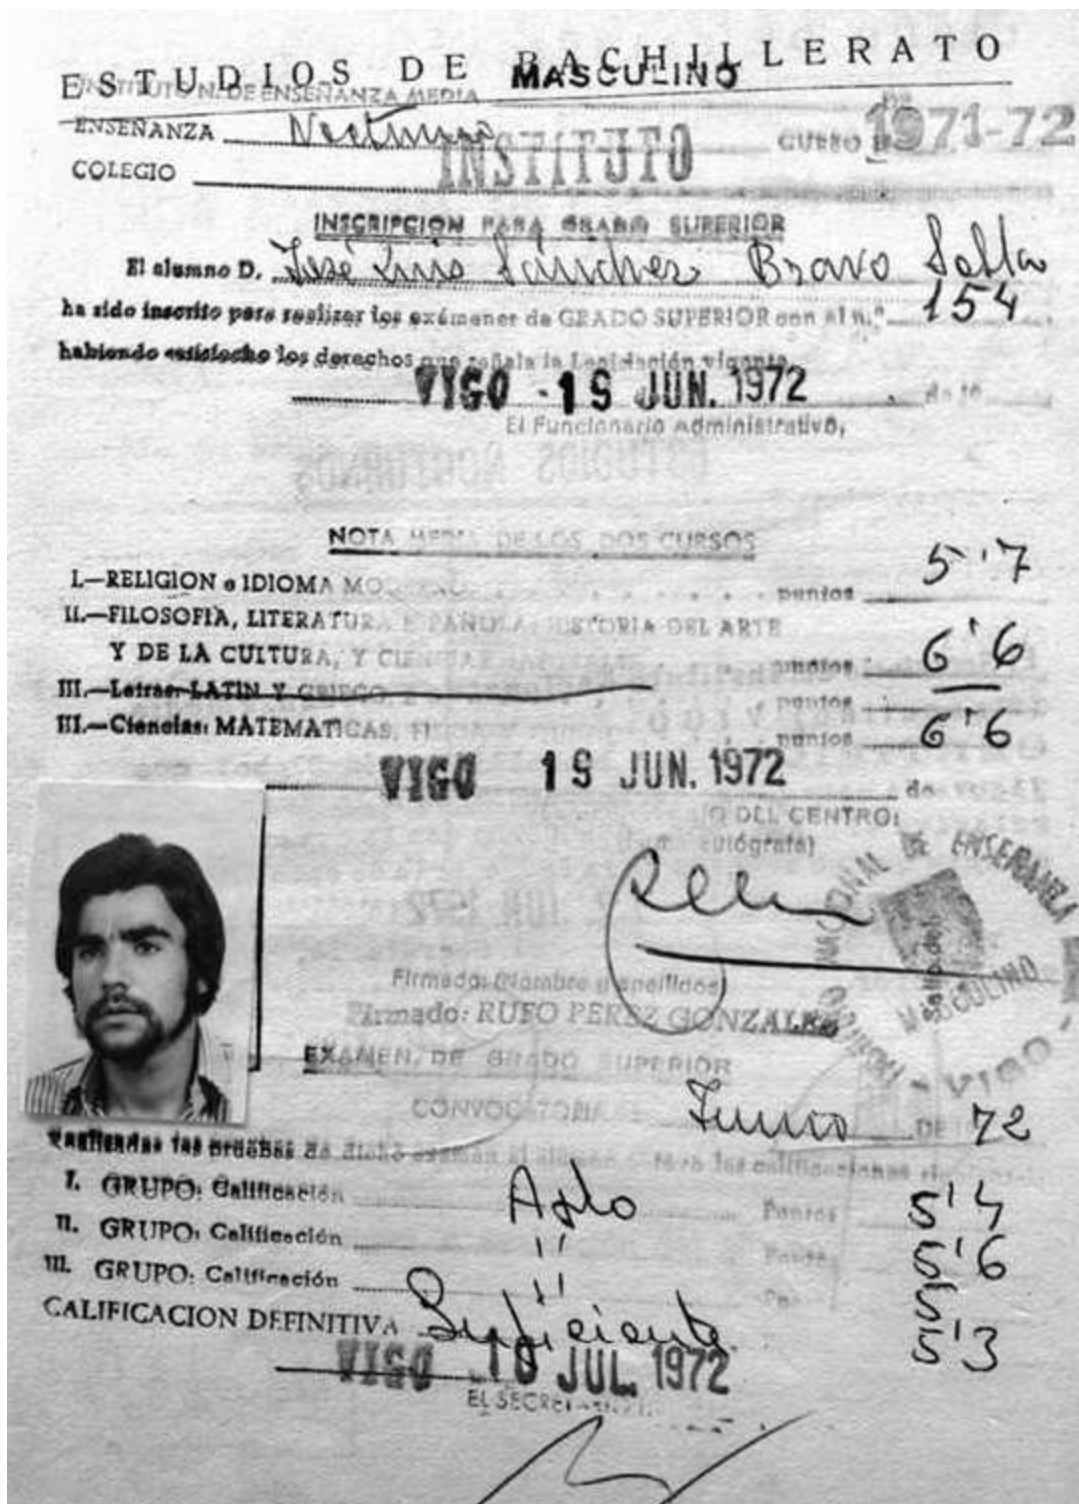 ESTUDIOS DE BACHILLERATO
INSTITUTO N. DE ENSEÑANZA MEDIA MASCULINO
ENSEÑANZA Nocturno INSTITUTO CURSO 1971-72
COLEGIO
INSCRIPCION PARA GRADO SUPERIOR
El alumno D. José Luis Sánchez Bravo Solla
ha sido inscrito para realizar los exámenes de GRADO SUPERIOR con el n.º 154
habiendo satisfecho los derechos que señala la Legislación vigente.
VIGO - 19 JUN. 1972 de 19
El Funcionario Administrativo,
ESTUDIOS NOCTURNOS
NOTA MEDIA DE LOS DOS CURSOS
I.—RELIGION e IDIOMA MODERNO. puntos 5'7
II.—FILOSOFIA, LITERATURA ESPAÑOLA, HISTORIA DEL ARTE
Y DE LA CULTURA, Y CIENCIAS puntos 6'6
III.—Letras: LATIN Y GRIEGO. puntos
III.—Ciencias: MATEMATICAS, puntos 6'6
VIGO 19 JUN. 1972 de
DEL CENTRO:
autógrafa)
NACIONAL DE ENSEÑANZA
MASCULINO
VIGO
Firmado: (Nombre y apellidos)
Firmado: RUFO PEREZ GONZALEZ
EXAMEN DE GRADO SUPERIOR
CONVOCATORIA Junio DE 72
Realizadas las pruebas de dicho examen el alumno obtuvo las calificaciones
I. GRUPO: Calificación Apto Puntos 5'4
II. GRUPO: Calificación '' Puntos 5'6
III. GRUPO: Calificación '' 5
CALIFICACION DEFINITIVA Suficiente 5'3
VIGO 10 JUL. 1972
EL SECRETARIO